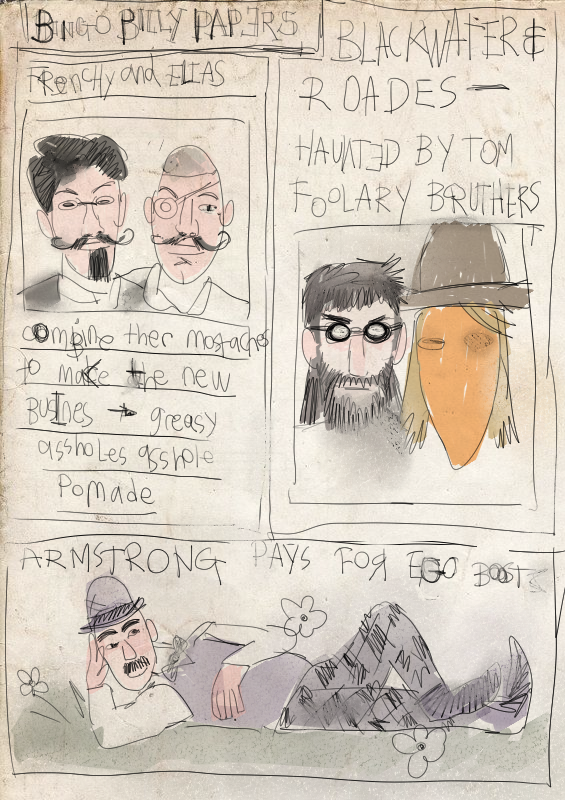 BINGO BILLY PAPERS
FRENCHY and ELIAS
combine ther mostaches
to make the new
Busines greasy
assholes asshole
Pomade
BLACKWATER &
ROADES —
HAUNTED BY TOM
FOOLARY BRUTHERS
ARMSTRONG PAYS FOR EGO BOOST